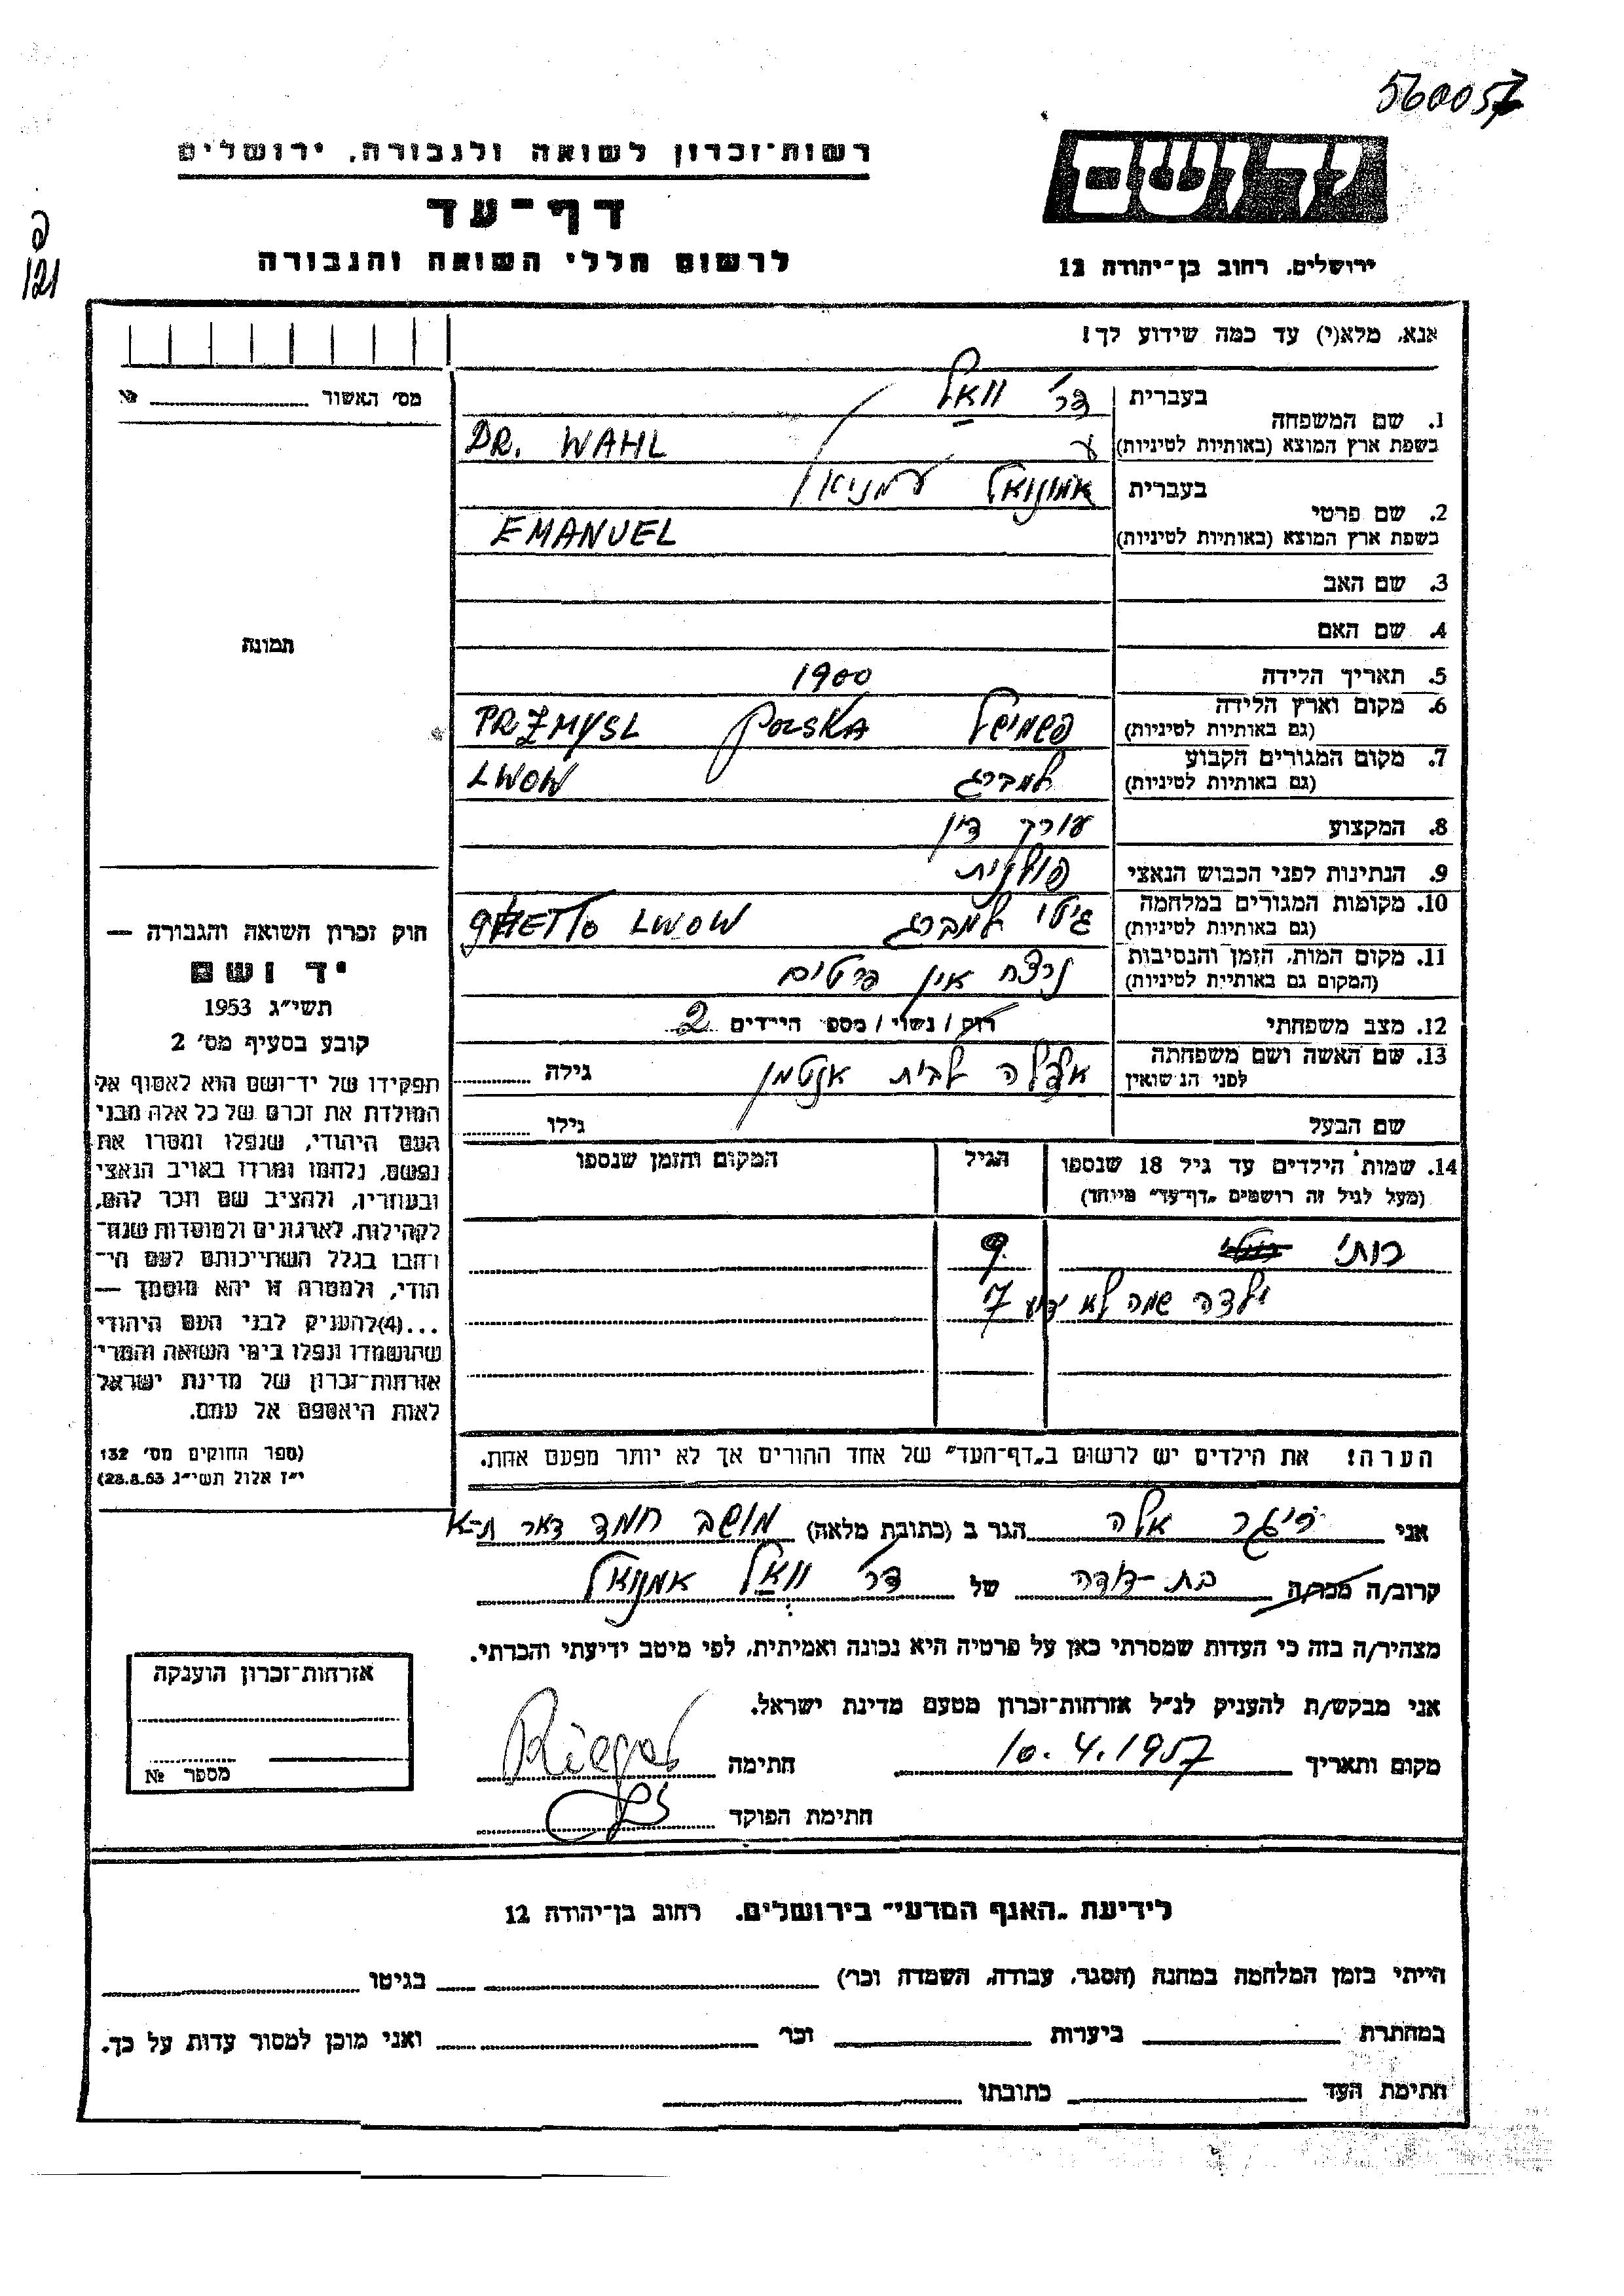 560057
רשות־זכרון לשואה ולגבורה, ירושלים
יד ושם
דף־עד
לרשום חללי השואה והגבורה
ירושלים, רחוב בן־יהודה 12
121
אנא, מלא(י) עד כמה שידוע לך!
מס׳ האשור № 
בעברית דר׳ וואל
1. שם המשפחה
בשפת ארץ המוצא (באותיות לטיניות) DR. WAHL
בעברית אמנואל
2. שם פרטי
בשפת ארץ המוצא (באותיות לטיניות) EMANUEL
3. שם האב
4. שם האם
תמונה
5. תאריך הלידה 1900
6. מקום וארץ הלידה פשמישל POLSKA PRZMYSL
(גם באותיות לטיניות)
7. מקום המגורים הקבוע למברג LWOW
(גם באותיות לטיניות)
8. המקצוע עורך דין
9. הנתינות לפני הכבוש הנאצי פולנית
10. מקומות המגורים במלחמה גיטו למברג GHETTO LWOW
(גם באותיות לטיניות)
11. מקום המות, הזמן והנסיבות נרצח אין פרטים
(המקום גם באותיות לטיניות)
12. מצב משפחתי רווק / נשוי / מספ הילדים 2
13. שם האשה ושם משפחתה לבית גילה
לפני הנישואין
שם הבעל גילו
14. שמות הילדים עד גיל 18 שנספו הגיל המקום והזמן שנספו
(מעל לגיל זה רושמים „דף־עד״ מיוחד)
רותי 9
ילדה שמה לא ידוע 7
הערה! את הילדים יש לרשום ב„דף־העד״ של אחד ההורים אך לא יותר מפעם אחת.
חוק זכרון השואה והגבורה —
יד ושם
תשי״ג 1953
קובע בסעיף מס׳ 2
תפקידו של יד־ושם הוא לאסוף אל
המולדת את זכרם של כל אלה מבני
העם היהודי, שנפלו ומסרו את
נפשם, נלחמו ומרדו באויב הנאצי
ובעוזריו, ולהציב שם וזכר להם,
לקהילות, לארגונים ולמוסדות שנח־
רבו בגלל השתייכותם לעם הי־
הודי, ולמטרה זו יהא מוסמך —
...(4) להעניק לבני העם היהודי
שהושמדו ונפלו בימי השואה והמרי
אזרחות־זכרון של מדינת ישראל
לאות היאספם אל עמם.
(ספר החוקים מס׳ 132
י״ז אלול תשי״ג 28.8.53)
אני ריגר אלה הגר ב (כתובת מלאה) מושב חמד דאר ת־א
קרוב/ה מכר/ה בת-דודה של דר׳ וואל אמנואל
מצהיר/ה בזה כי העדות שמסרתי כאן על פרטיה היא נכונה ואמיתית, לפי מיטב ידיעתי והכרתי.
אני מבקש/ת להעניק לנ״ל אזרחות־זכרון מטעם מדינת ישראל.
מקום ותאריך 10.4.1957 חתימה Rieger
חתימת הפוקד
אזרחות־זכרון הוענקה
מספר №
לידיעת „האגף המדעי״ בירושלים, רחוב בן־יהודה 12
הייתי בזמן המלחמה במחנה (הסגר, עבודה, השמדה וכר׳) בגיטו
במחתרת ביערות וכר׳ ואני מוכן למסור עדות על כך.
חתימת העד כתובתו